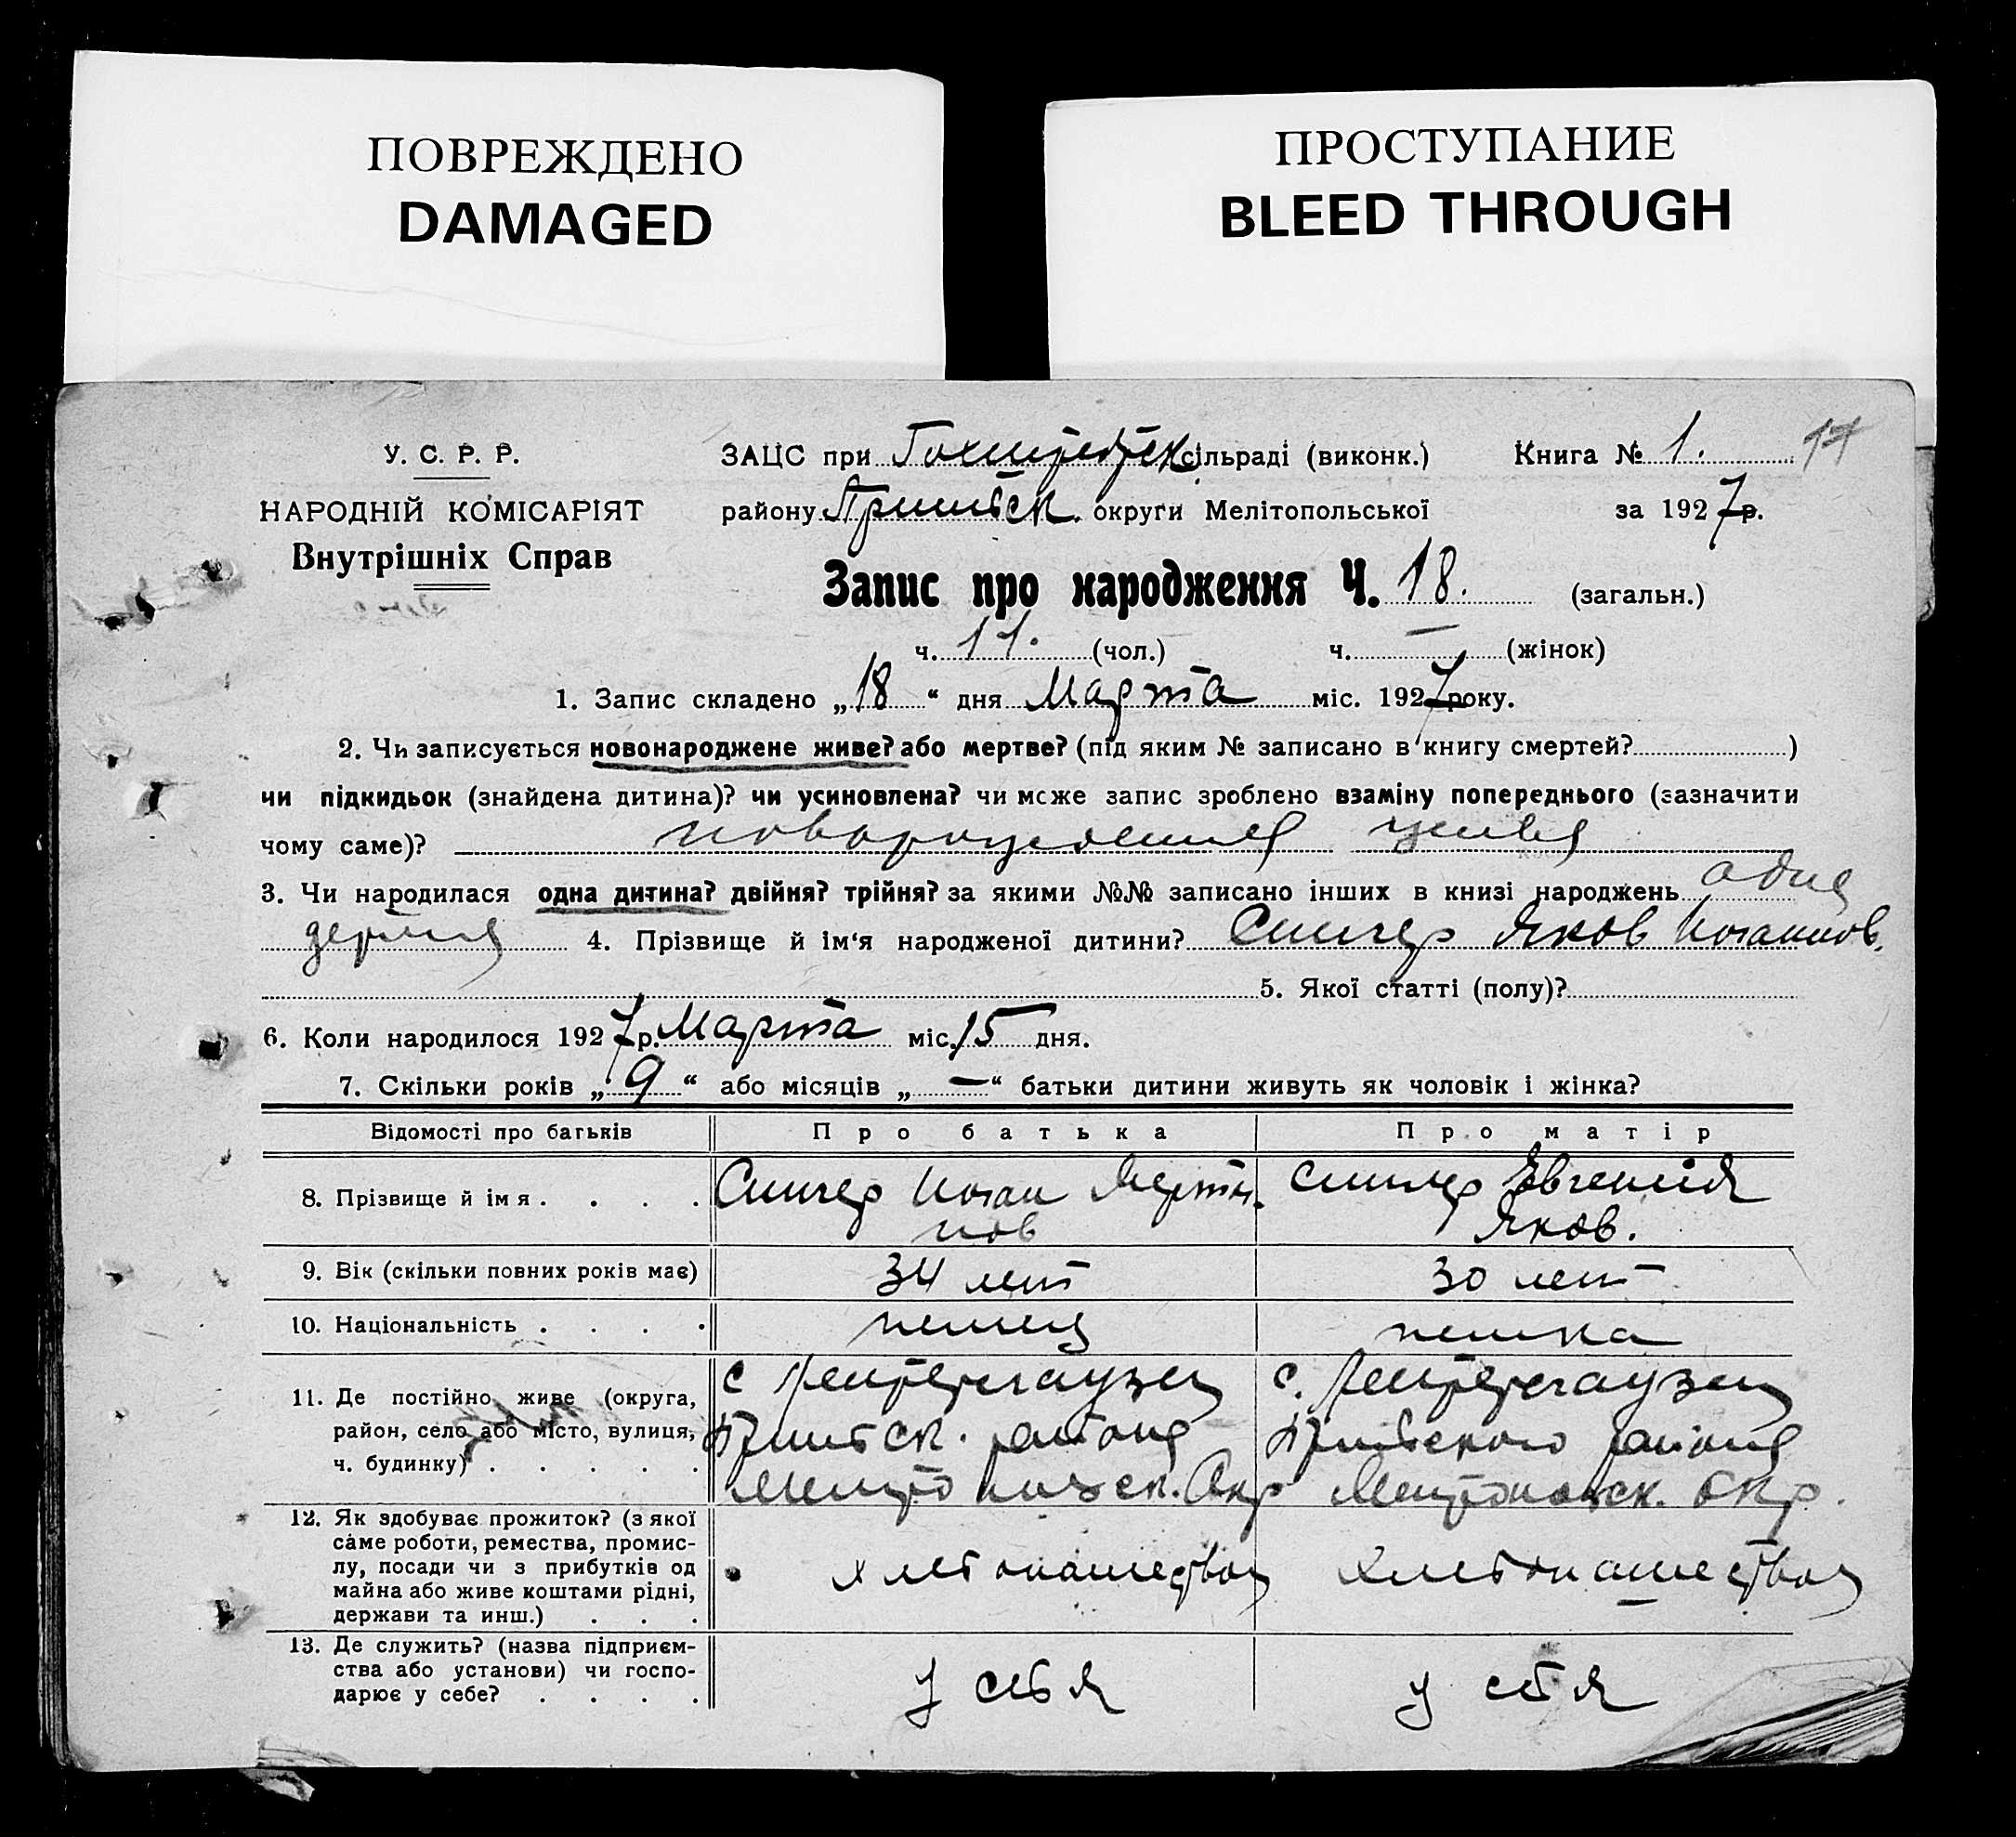 ПОВРЕЖДЕНО
DAMAGED
ПРОСТУПАНИЕ
BLEED THROUGH
У. С. Р. Р.
НАРОДНІЙ КОМІСАРІЯТ
Внутрішніх Справ
ЗАЦС при сільраді (виконк.) Книга № 1. 17
району Пришибск. округи Мелітопольської за 1927 р.
Запис про народження Ч. 18. (загальн.)
ч. 11. (чол.) ч. — (жінок)
1. Запис складено „18“ дня Марта міс. 1927 року.
2. Чи записується новонароджене живе? або мертве? (під яким № записано в книгу смертей? )
чи підкидьок (знайдена дитина)? чи усиновлена? чи може запис зроблено взаміну попереднього (зазначити
чому саме)? новорожденный живый
3. Чи народилася одна дитина? двійня? трійня? за якими №№ записано інших в книзі народжень одна
4. Прізвище й ім'я народженої дитини? Сингер Яков Иоганнов.
5. Якої статті (полу)?
6. Коли народилося 1927 р. Марта міс. 15 дня.
7. Скільки років „9“ або місяців „—“ батьки дитини живуть як чоловік і жінка?
Відомості про батьків Про батька Про матір
8. Прізвище й імя . . . . Сингер Иоган Марты- Сингер Евгения
нов Яков.
9. Вік (скільки повних років має) 34 лет 30 лет
10. Національність . . . . немец немка
11. Де постійно живе (округа,
район, село або місто, вулиця,
ч. будинку) . . . . .
с Рейхерсгаузен с.
Пришибск. района Пришибского района
Мелитопольск. Окр Мелитопольск. окр.
12. Як здобуває прожиток? (з якої
саме роботи, ремества, промис-
лу, посади чи з прибутків од
майна або живе коштами рідні,
держави та инш.) . . .
хлебопашеством хлебопашеством
13. Де служить? (назва підприєм-
ства або установи) чи госпо-
дарює у себе? . . . .
у себя у себя